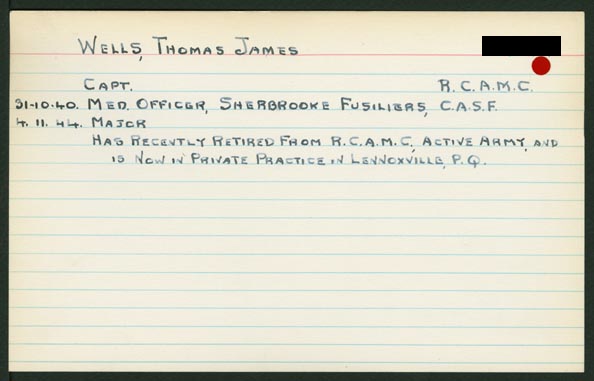 WELLS, THOMAS JAMES
CAPT. R.C.A.M.C.
31-10-40. MED. OFFICER, SHERBROOKE FUSILIERS, C.A.S.F.
4.11.44. MAJOR
HAS RECENTLY RETIRED FROM R.C.A.M.C, ACTIVE ARMY, AND
IS NOW IN PRIVATE PRACTICE IN LENNOXVILLE, P.Q.